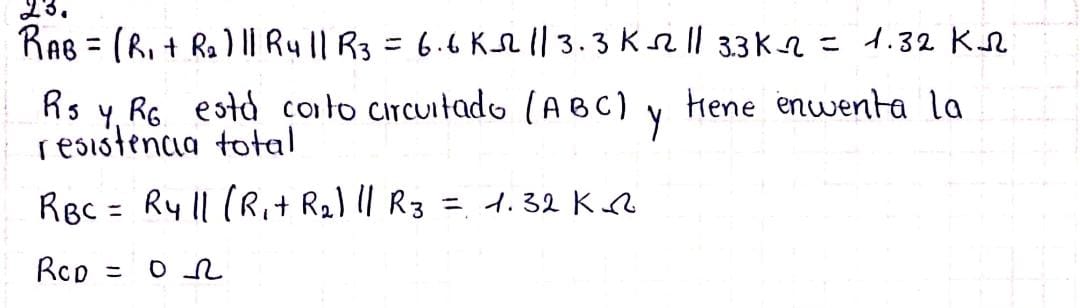 23.
RAB = (R1 + R2) || R4 || R3 = 6.6 KΩ || 3.3 KΩ || 3.3KΩ = 1.32 KΩ
R5 y R6 está corto circuitado (ABC) y tiene encuenta la
resistencia total
RBC = R4 || (R1 + R2) || R3 = 1.32 KΩ
RCD = 0 Ω